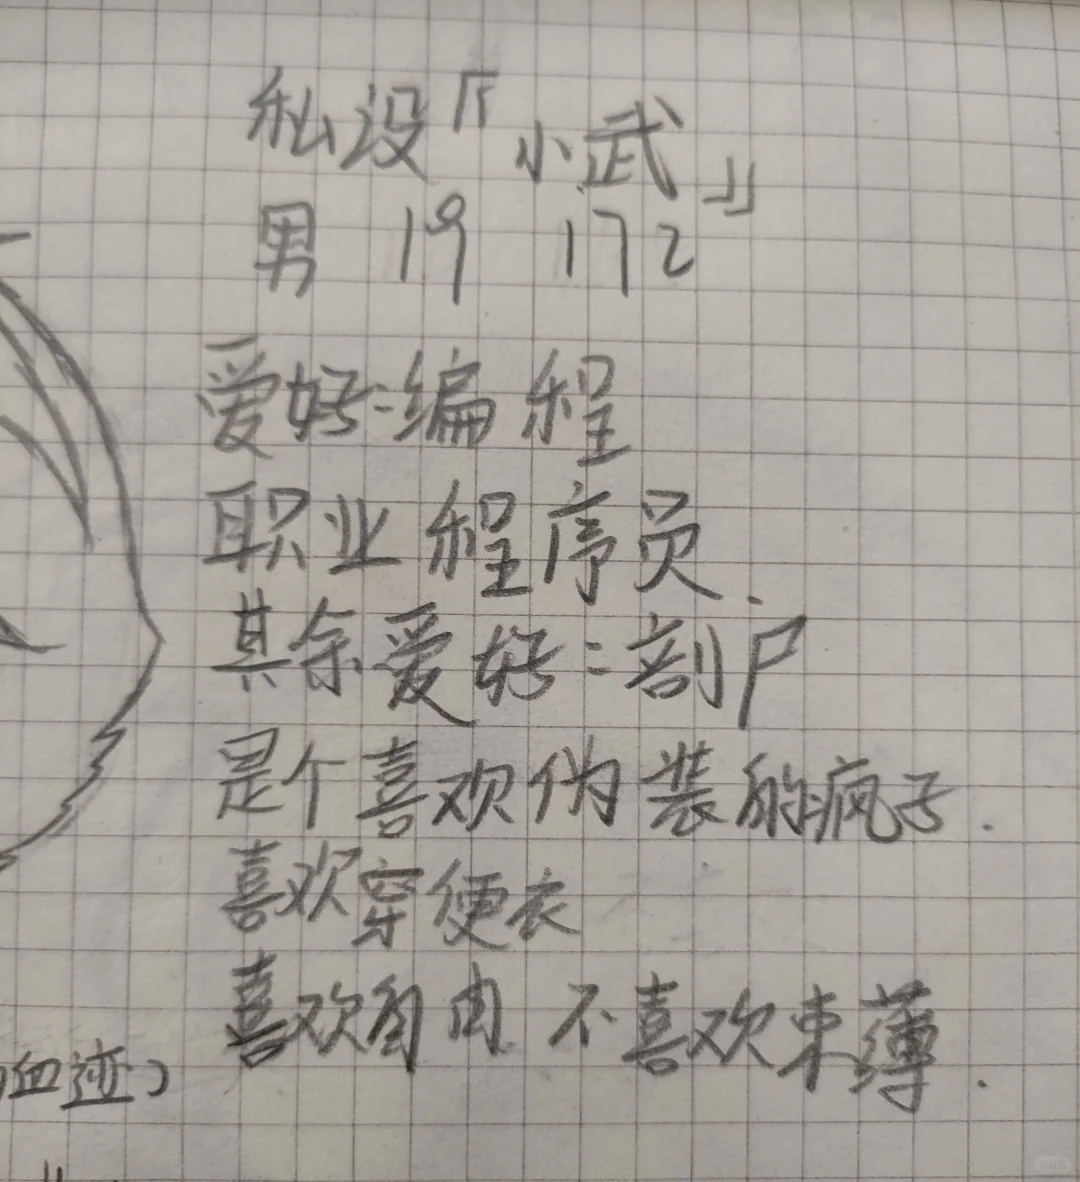 私设『小武』
男 19 172
爱好:编程
职业程序员.
其余爱好:剖尸
是个喜欢伪装的疯子.
喜欢穿便衣
喜欢自由 不喜欢束薄.
血迹)